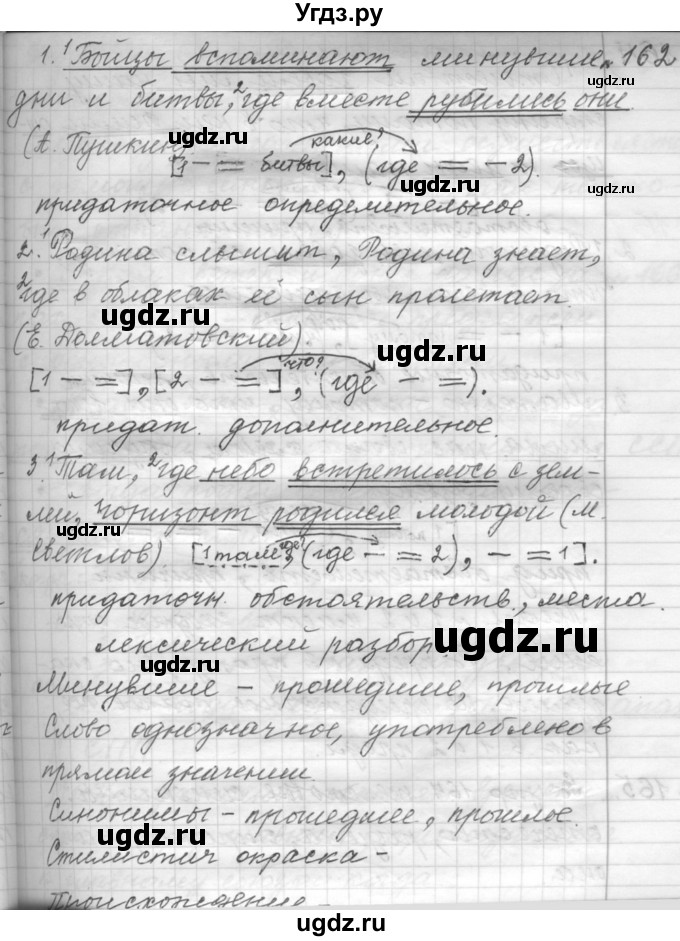 Угдз.ру
1. ¹Бойцы вспоминают минувшие №162
дни и битвы, ²где вместе рубились они.
(А. Пушкин)
[1 – = битвы], какие? (где = – 2).
придаточное определительное.
2. ¹Родина слышит, Родина знает,
²где в облаках её сын пролетает.
(Е. Долматовский).
[1 – =], [2 – =], что? (где – =).
придат. дополнительное.
3. ¹Там, ²где небо встретилось с зем-
лей, ¹горизонт родился молодой (М.
Светлов). [1 там, где? (где – = 2), – = 1].
придаточн. обстоятельств., места.
лексический разбор.
Минувшие – прошедшие, прошлые
Слово однозначное, употреблено в
прямом значении.
Синонимы – прошедшее, прошлое.
Стилистич окраска –
Происхождение –
uhgdz.ru
uhgdz.ru
uhgdz.ru
uhgdz.ru
uhgdz.ru
uhgdz.ru
uhgdz.ru
uhgdz.ru
uhgdz.ru
uhgdz.ru
uhgdz.ru